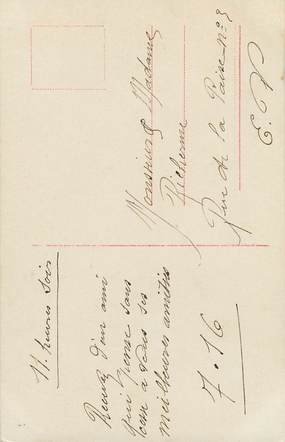 11. heures soir
Reçevez d'un ami
qui pense sans
cesse a tous ses
meilleures amitiés
7.16
Monsieur & Madame
Richerme
Rue de la Paix n° 3
E. V